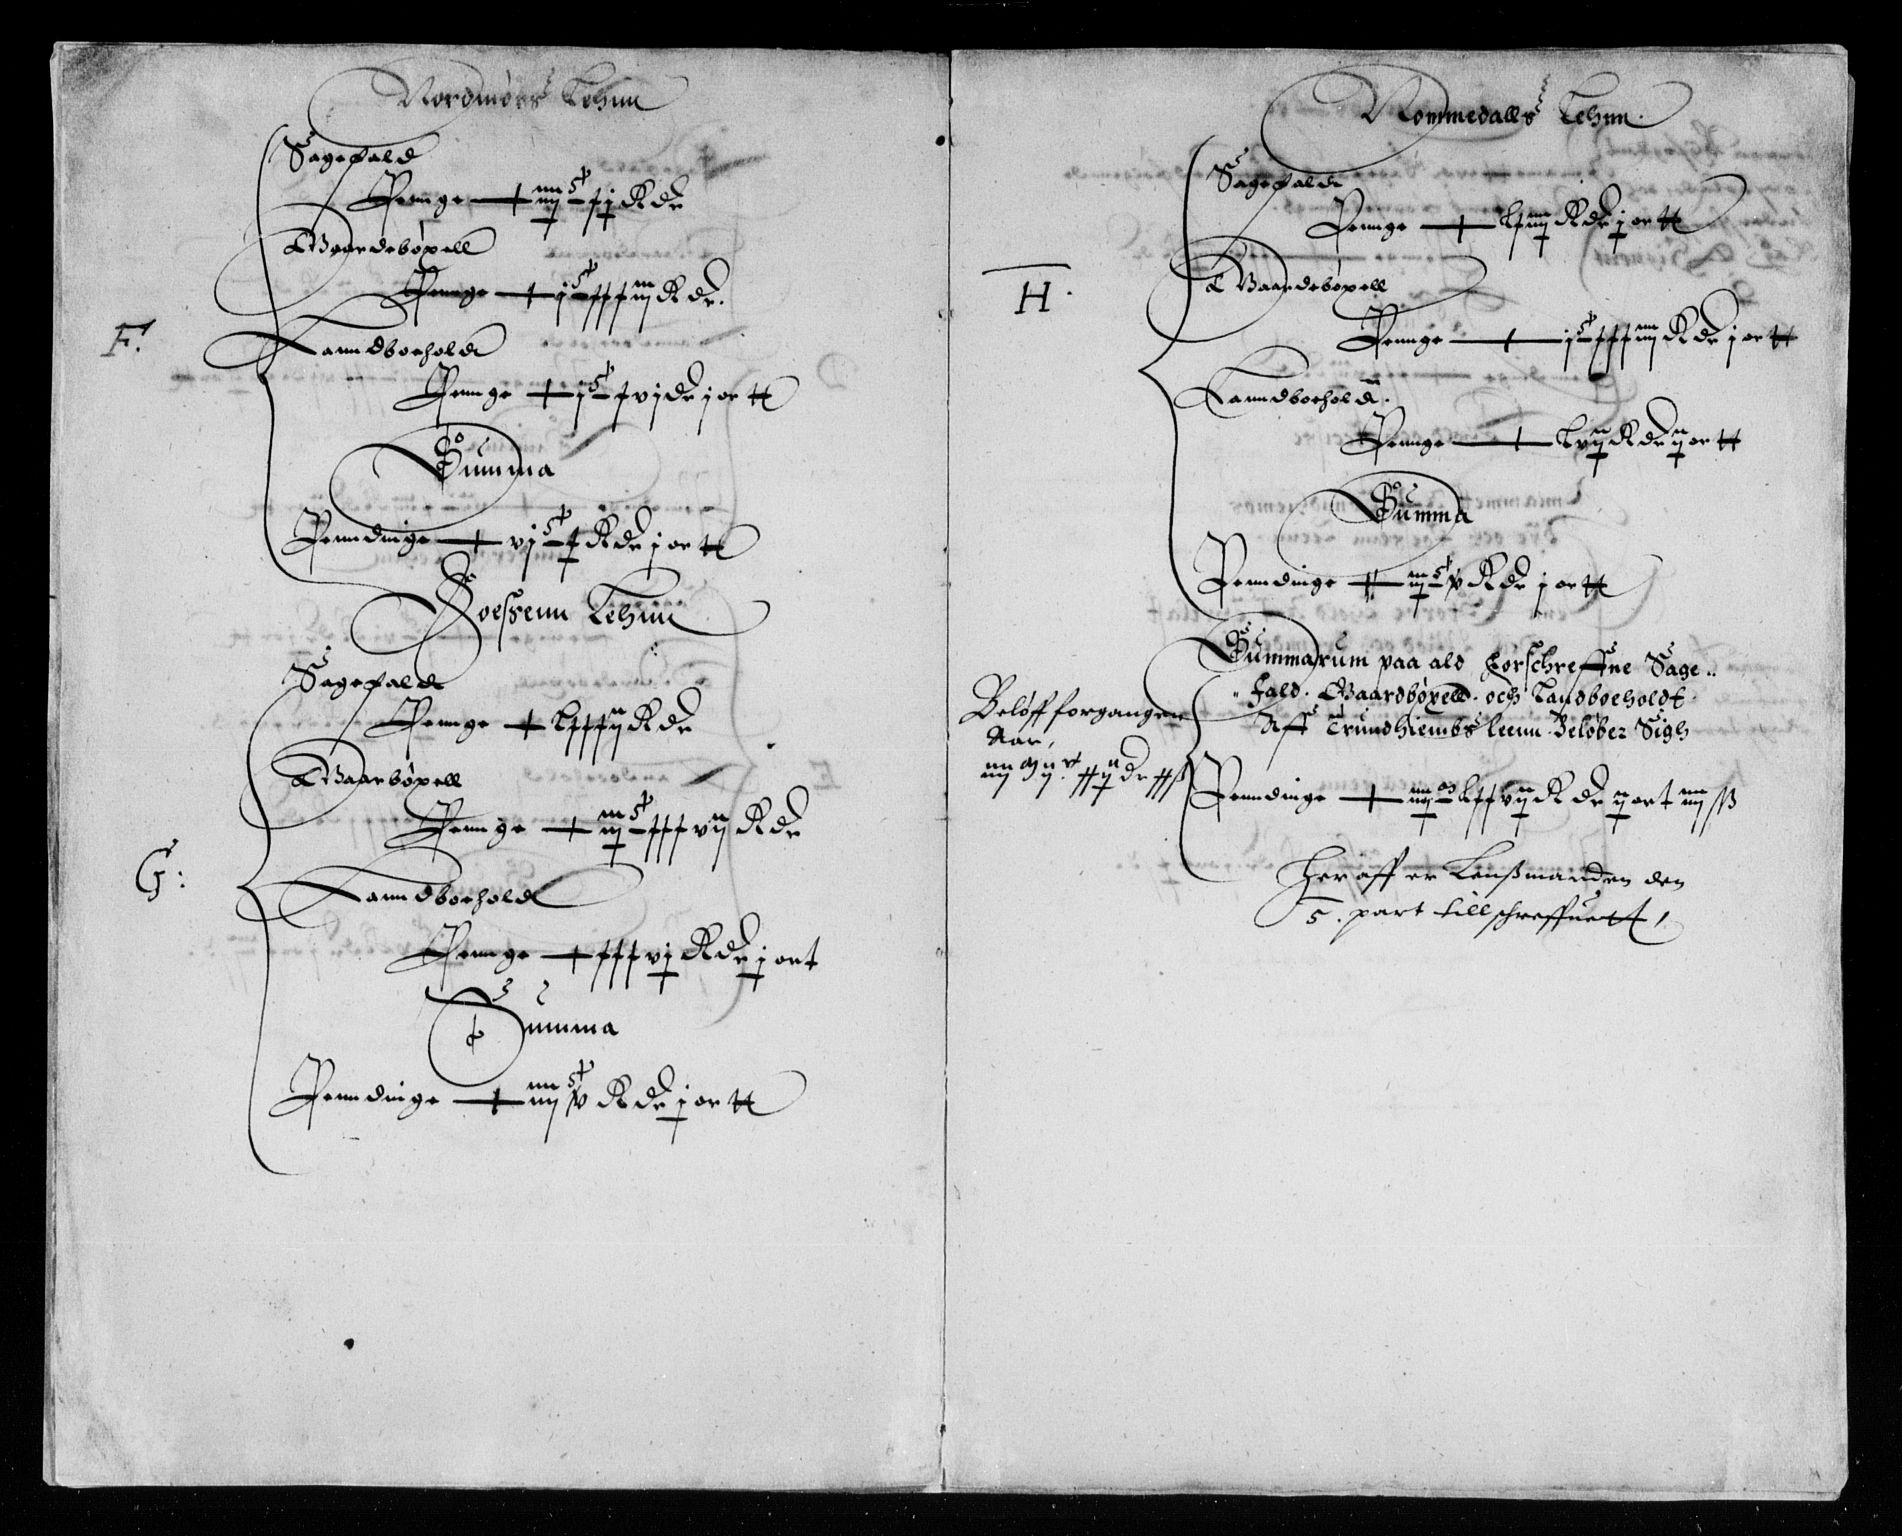 Nordmørs Lehnn
Sagefald
Pennge — iiij C xj Rdr
Gaardebøxell
Pennge — j C xxxiiij Rdr.
F.
Lanndboehold
Pennge — j C xvj dr j ortt
Summa
Penndinge — vj C x Rdr j ortt
Foessenn Lehnn
Sagefald
Pennge — lxxxij Rdr
Gaarbøxell
Pennge — iij C xxxvij Rdr
G:
Lanndboehold
Pennge — xxxvj Rdr j ort
Summa
Penndinge — iiij C lv Rdr j ortt
Nommedalls Lehnn.
Sagefald
Pennge — lxiij Rdr j ortt
Gaardebøxell
H.
Pennge — j C xxxiiij Rdr j ortt
Lanndboehold.
Pennge — lvij Rdr ij ortt
Summa
Penndinge — iij C lv Rdr j ortt
Summarum paa ald forschreffne Sage..
fald. Gaardbøxell. och Landboeholdt.
Aff Trundhiembs leenn. Beløber Sigh
Beløff forgangen
Aar,
Penndinge — lxxvij Rdr ij ort iiij ß
Her aff er Lenßmanden den
5. part till schreffuett,